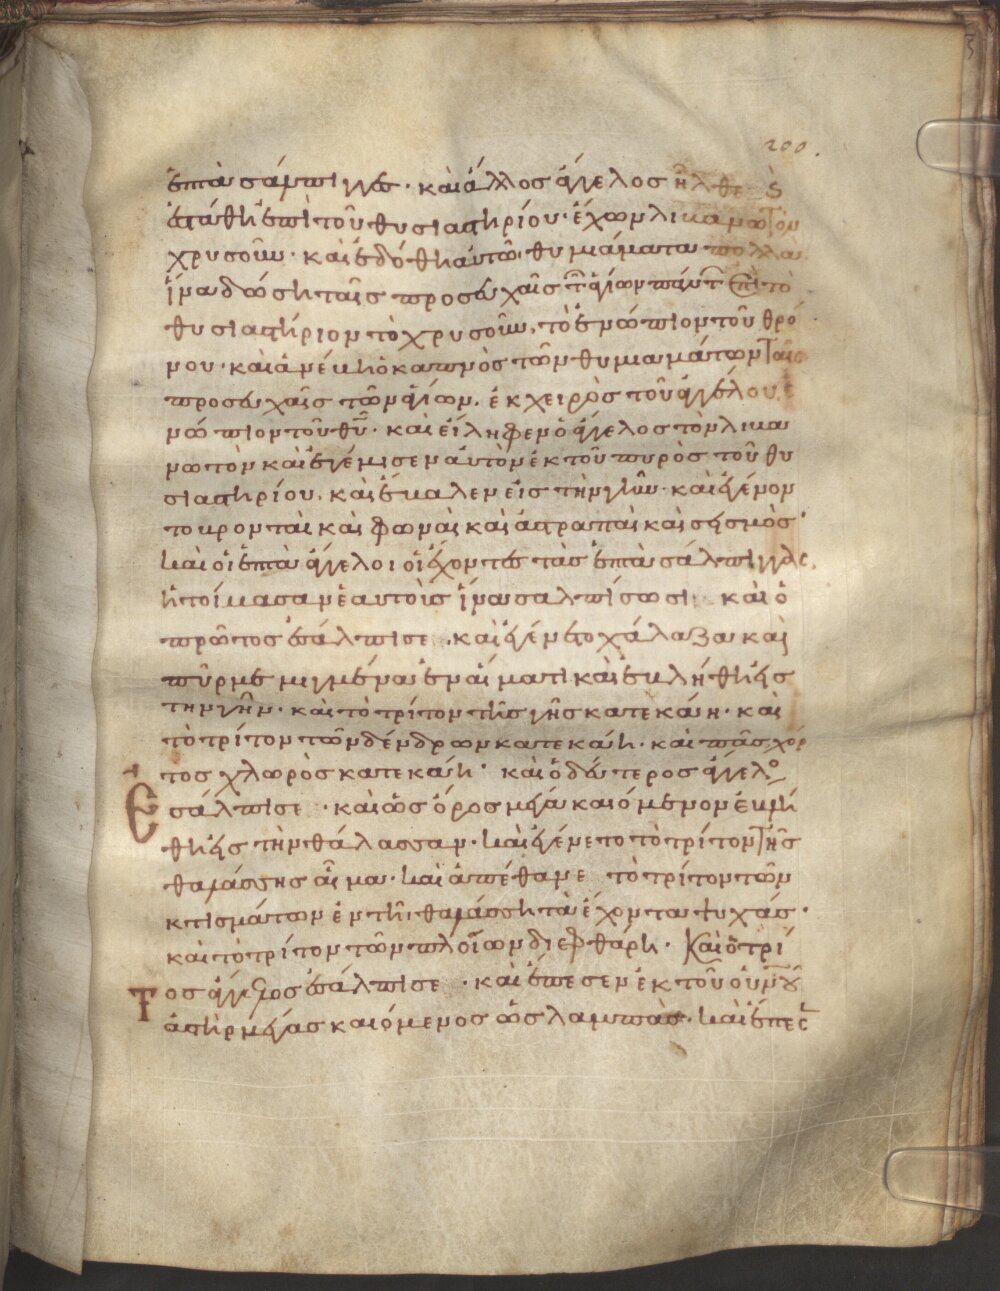 200.
ἑπτὰ σάλπιγγες· καὶ ἄλλος ἄγγελος ἦλθε
ἐστάθη ἐπὶ τοῦ θυσιαστηρίου· ἔχων λιβανωτὸν
χρυσοῦν· καὶ ἐδόθη αὐτῶ θυμιάματα πολλὰ
ἵνα δώση ταῖς προσευχαῖς τῶν ἁγίων πάντων ἐπὶ τὸ
θυσιαστήριον τὸ χρυσοῦν, τὸ ἐνώπιον τοῦ θρό
νου· καὶ ἀνέβη ὁ καπνὸς τῶν θυμιαμάτων ταῖς
προσευχαῖς τῶν ἁγίων. ἐκ χειρὸς τοῦ ἀγγέλου ἐ
νώπιον τοῦ θυ· καὶ εἴληφεν ὁ ἄγγελος τὸν λιβα
νωτὸν καὶ ἐγέμισεν αὐτὸν ἐκ τοῦ πυρὸς τοῦ θυ
σιαστηρίου, καὶ ἔβαλεν εἰς τὴν γῆν· καὶ ἐγένον
το βρονταὶ καὶ φωναὶ καὶ ἀστραπαὶ καὶ σεισμὸς·
καὶ οἱ ἑπτὰ ἄγγελοι οἱ ἔχοντες τὰς ἑπτὰ σάλπιγγας,
ἡτοίμασαν ἑαυτοὺς ἵνα σαλπίσωσι· καὶ ὁ
πρῶτος ἐσάλπισε· καὶ ἐγένετο χάλαζα καὶ
πῦρ μεμιγμένα ἐν αἵματι καὶ ἐβλήθη εἰς
τὴν γῆν· καὶ τὸ τρίτον τῆς γῆς κατεκάη· καὶ
τὸ τρίτον τῶν δένδρων κατεκάη· καὶ πᾶς χόρ
τος χλωρὸς κατεκάη· καὶ ὁ δεύτερος ἄγγελος
ἐσάλπισε· καὶ ὡς ὄρος μέγα καιόμενον ἐβλή
θη εἰς τὴν θάλασσαν· καὶ ἐγένετο τὸ τρίτον τῆς
θαλάσσης αἷμα· καὶ ἀπέθανε τὸ τρίτον τῶν
κτισμάτων ἐν τῆ θαλάσση τὰ ἔχοντα ψυχάς·
καὶ τὸ τρίτον τῶν πλοίων διεφθάρη· Καὶ ὁ τρί
τος ἄγγελος ἐσάλπισε· καὶ ἔπεσεν ἐκ τοῦ οὐνοῦ
ἀστὴρ μέγας καιόμενος ὡς λαμπὰς· καὶ ἔπες